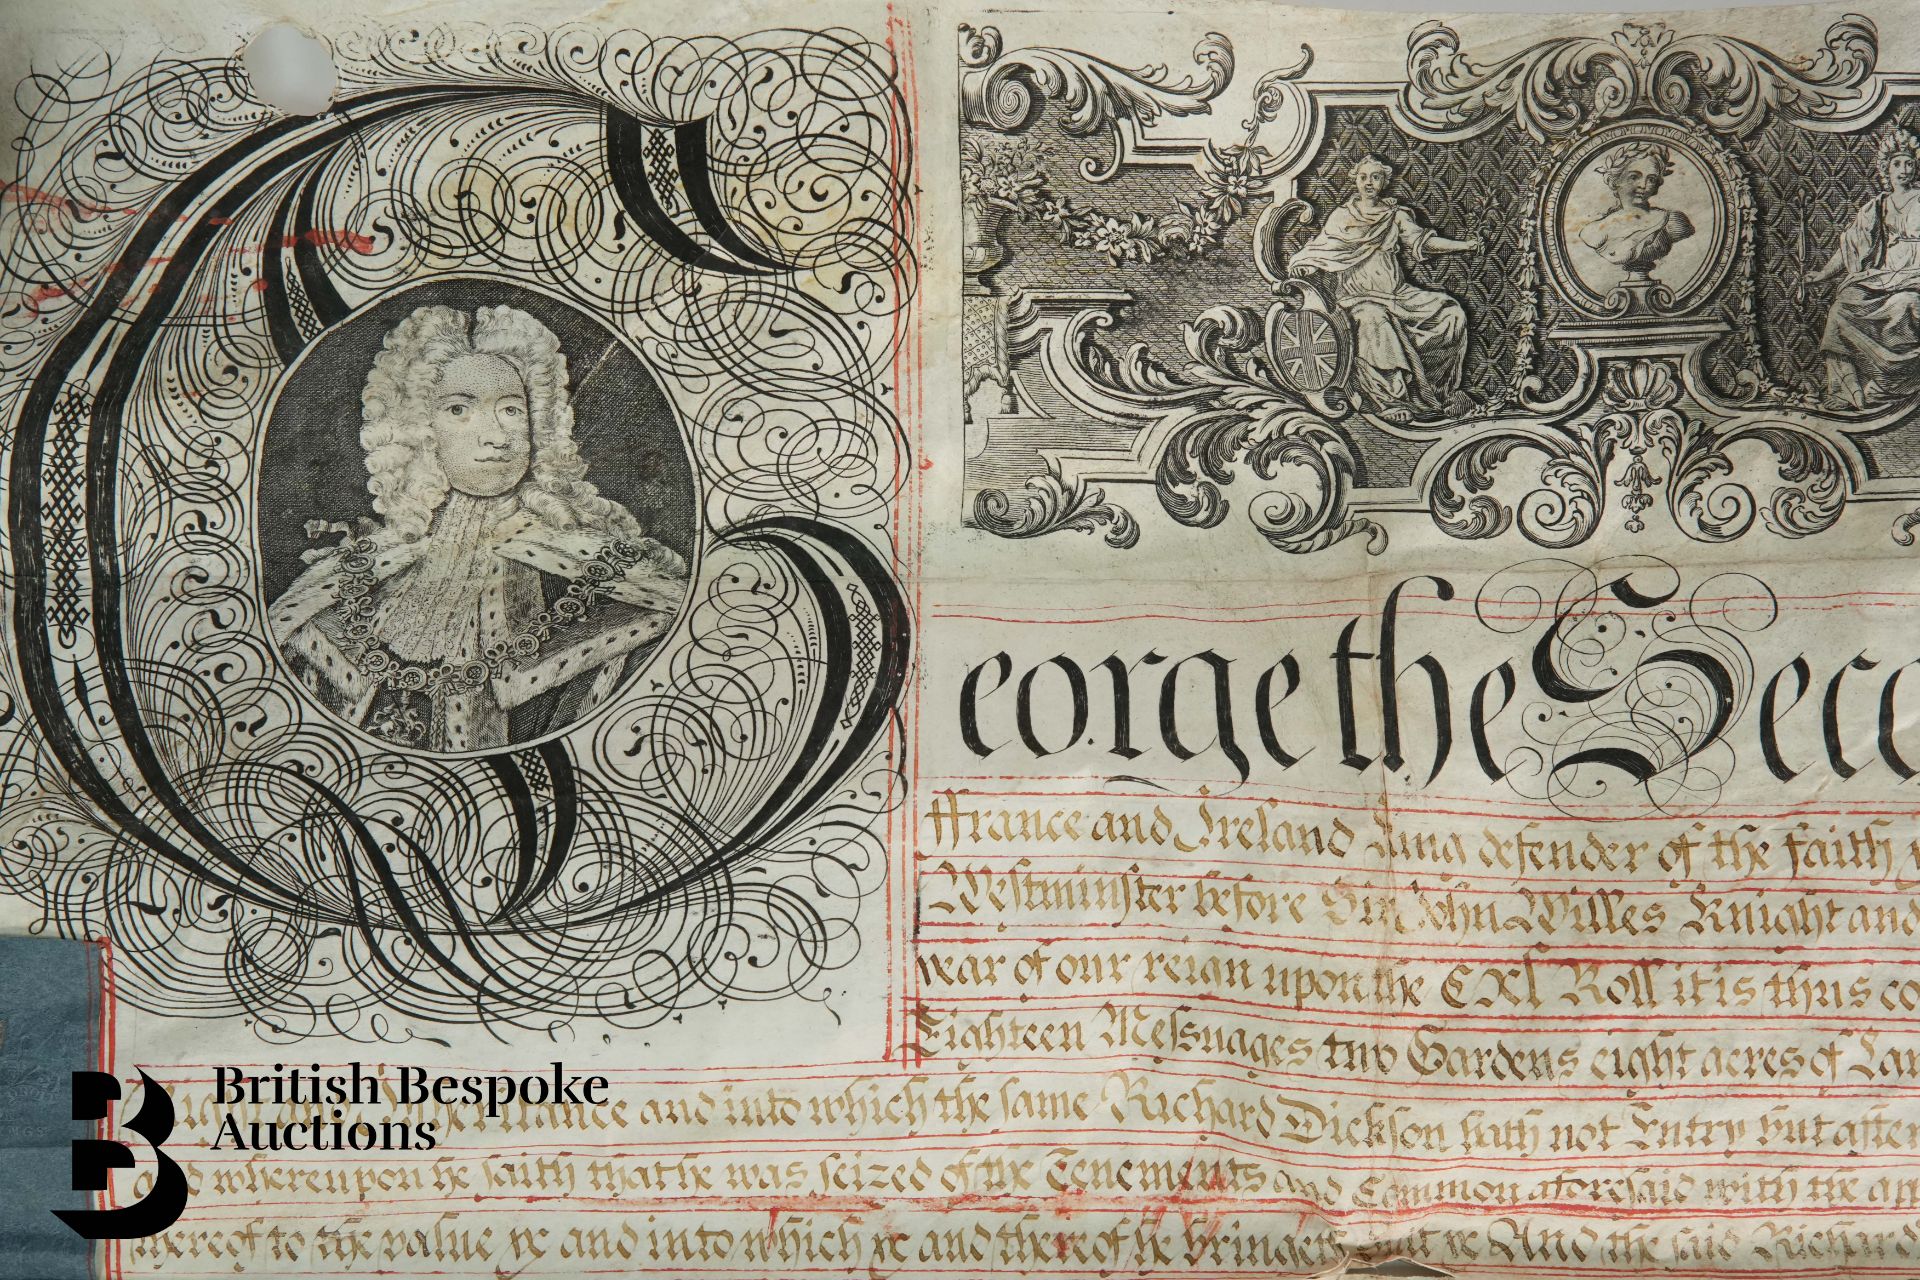 George the Seco
ffrance and Ireland King defender of the faith
Westminster before Sir John Willes Knight and
year of our reign upon the CXL Roll it is thus co
Eighteen Messuages two Gardens eight acres of Lan
Right and Inheritance and into which the same Richard Dickson hath not Entry but after
and whereupon he saith that he was seized of the Tenements and Common aforesaid with the ap
thereof to the value &c and into which &c and thereof he brings Suit &c And the said Richard
British Bespoke
Auctions